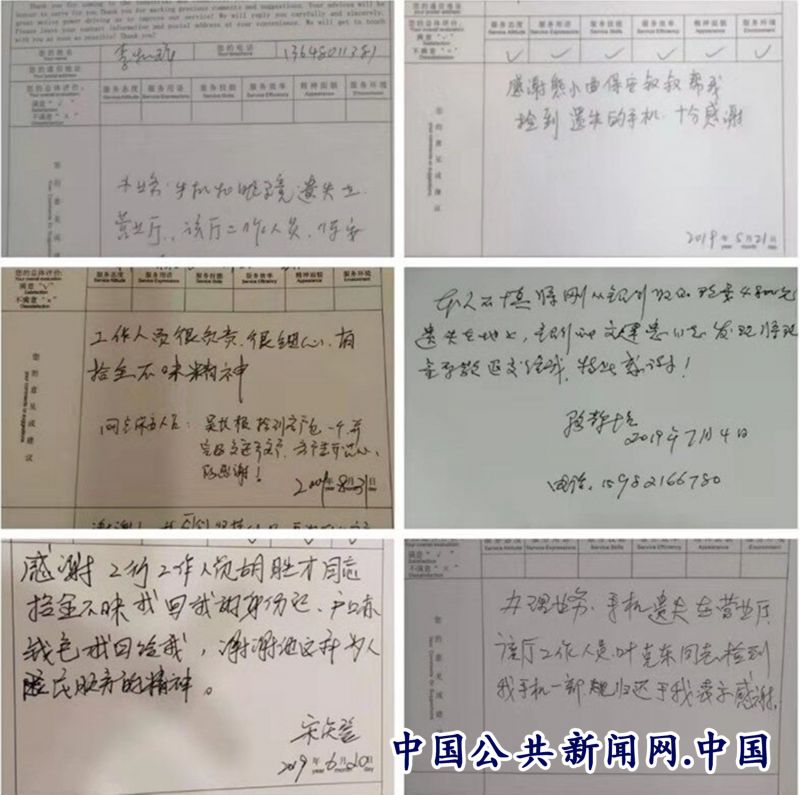 Thank you for coming to the Industrial and
honor to serve for you. Your working precious comments and suggestions. Your advices will
great motive power driving us to improve our service! We will reply you carefully and sincerely.
Please leave your contact information and postal address at your convenience. We will get to touch
with you as soon as possible! Thank you!
您的姓名
Your name
您的电话
Your telephone
13648011381
您的通信地址
Your postal address
您的总体评价:
Your overall evaluation:
满意“√”
Satisfaction
不满意“×”
Dissatisfaction
服务态度 服务用语 服务技能 服务效率 精神面貌 服务环境
Service Attitude Service Expressions Service Skills Service Efficiency Appearance Environment
您的意见或建议
Your comments or suggestions
手机和眼镜遗失在
营业厅,该厅工作人员,保安
服务态度 服务用语 服务技能 服务效率 精神面貌 服务环境
Service Attitude Service Expressions Service Skills Service Efficiency Appearance Environment
满意“√”
Satisfaction
不满意“×”
Dissatisfaction
√ √ √ √ √ √
您的意见或建议
your comments or suggestions
感谢熊小曲保安叔叔帮我
捡到遗失的手机,十分感谢
2019年5月21日
year month day
您的总体评价:
Your overall evaluation:
满意“√”
Satisfaction
不满意“×”
Dissatisfaction
服务态度 服务用语 服务技能 服务效率 精神面貌 服务环境
Service Attitude Service Expressions Service Skills Service Efficiency Appearance Environment
您的意见或建议
your comments or suggestions
工作人员很负责,很细心,有
拾金不昧精神
捡到客户包一个,并
感谢!
8月31日
本人不慎将刚从银行取的现金4800元
遗失在地上,银行的文建忠同志发现将现
金存款返交给我,特此感谢!
2019年7月4日
电话:15982166780
感谢工行工作人员胡胜才同志
拾金不昧 找回我的身份证、户口本
钱包找回给我,谢谢他这种为人
民服务的精神。
2019年6月20日
year month day
Service Attitude Service Expressions Service Skills Service Efficiency Appearance Environment
满意“√”
Satisfaction
不满意“×”
Dissatisfaction
√ √ √ √ √ √
您的意见或建议
Your comments or suggestions
办理业务,手机遗失在营业厅
该厅工作人员叶克东同志捡到
我手机一部,归还于我表示感谢.
中国公共新闻网.中国